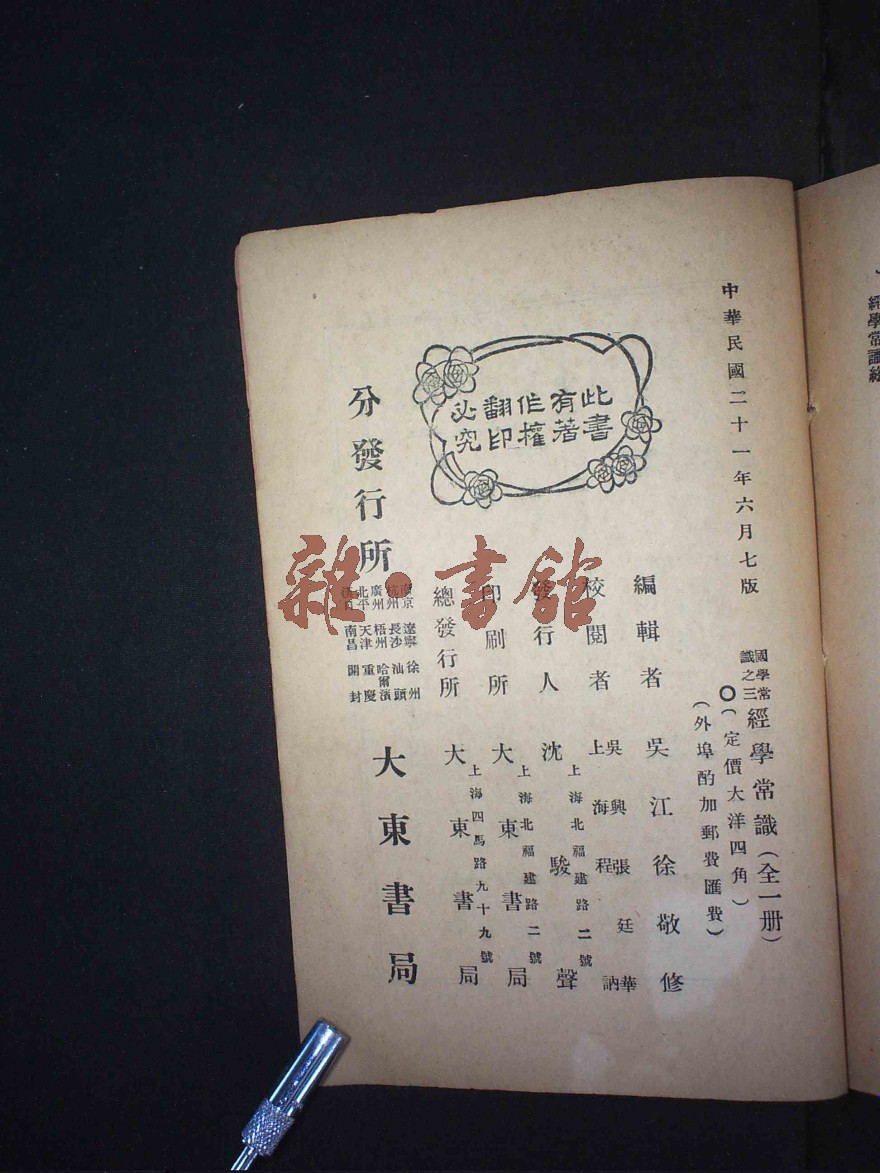 經學常識
中華民國二十一年六月七版
國學常識之三 經學常識（全一册）
（定價大洋四角）
（外埠酌加郵費匯費）
編輯者 吳江徐敬修
校閱者 吳興張廷華
上海程訥
發行人 沈駿聲
上海北福建路二號
印刷所 大東書局
上海北福建路二號
總發行所 大東書局
上海四馬路九十九號
分發行所 大東書局
南京 遼寧 徐州
杭州 長沙 汕頭
廣州 梧州 哈爾濱
北平 天津 重慶
南昌 開封
此書有著作權翻印必究
雜·書館